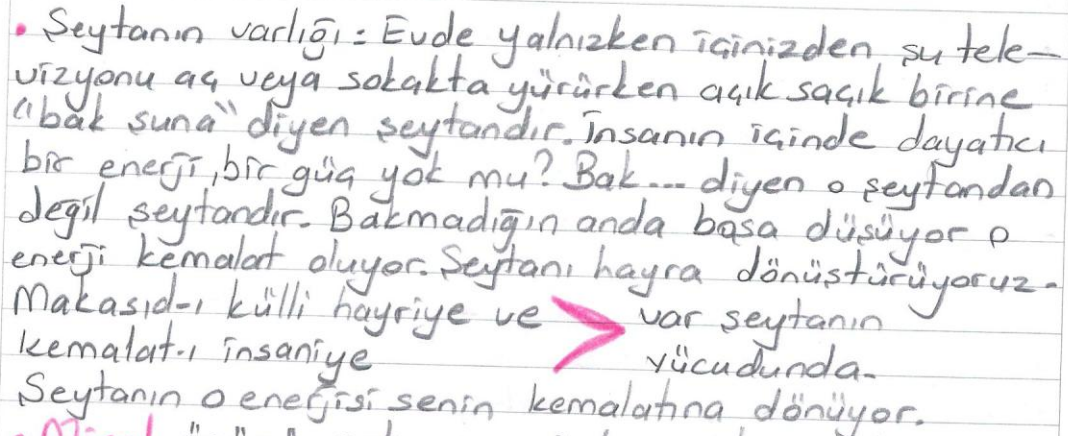 • Şeytanın varlığı: Evde yalnızken içinizden, şu tele-
vizyonu aç veya sokakta yürürken açık saçık birine
"bak şuna" diyen şeytandır. İnsanın içinde dayatıcı
bir enerji, bir güç yok mu? Bak... diyen o şeytandan
değil şeytandır. Bakmadığın anda başa düşüyor o
enerji kemalat oluyor. Şeytanı hayra dönüştürüyoruz.
Makasıd-ı külli hayriye ve > var şeytanın
kemalat-ı insaniye vücudunda.
Şeytanın o enerjisi senin kemalatına dönüyor.